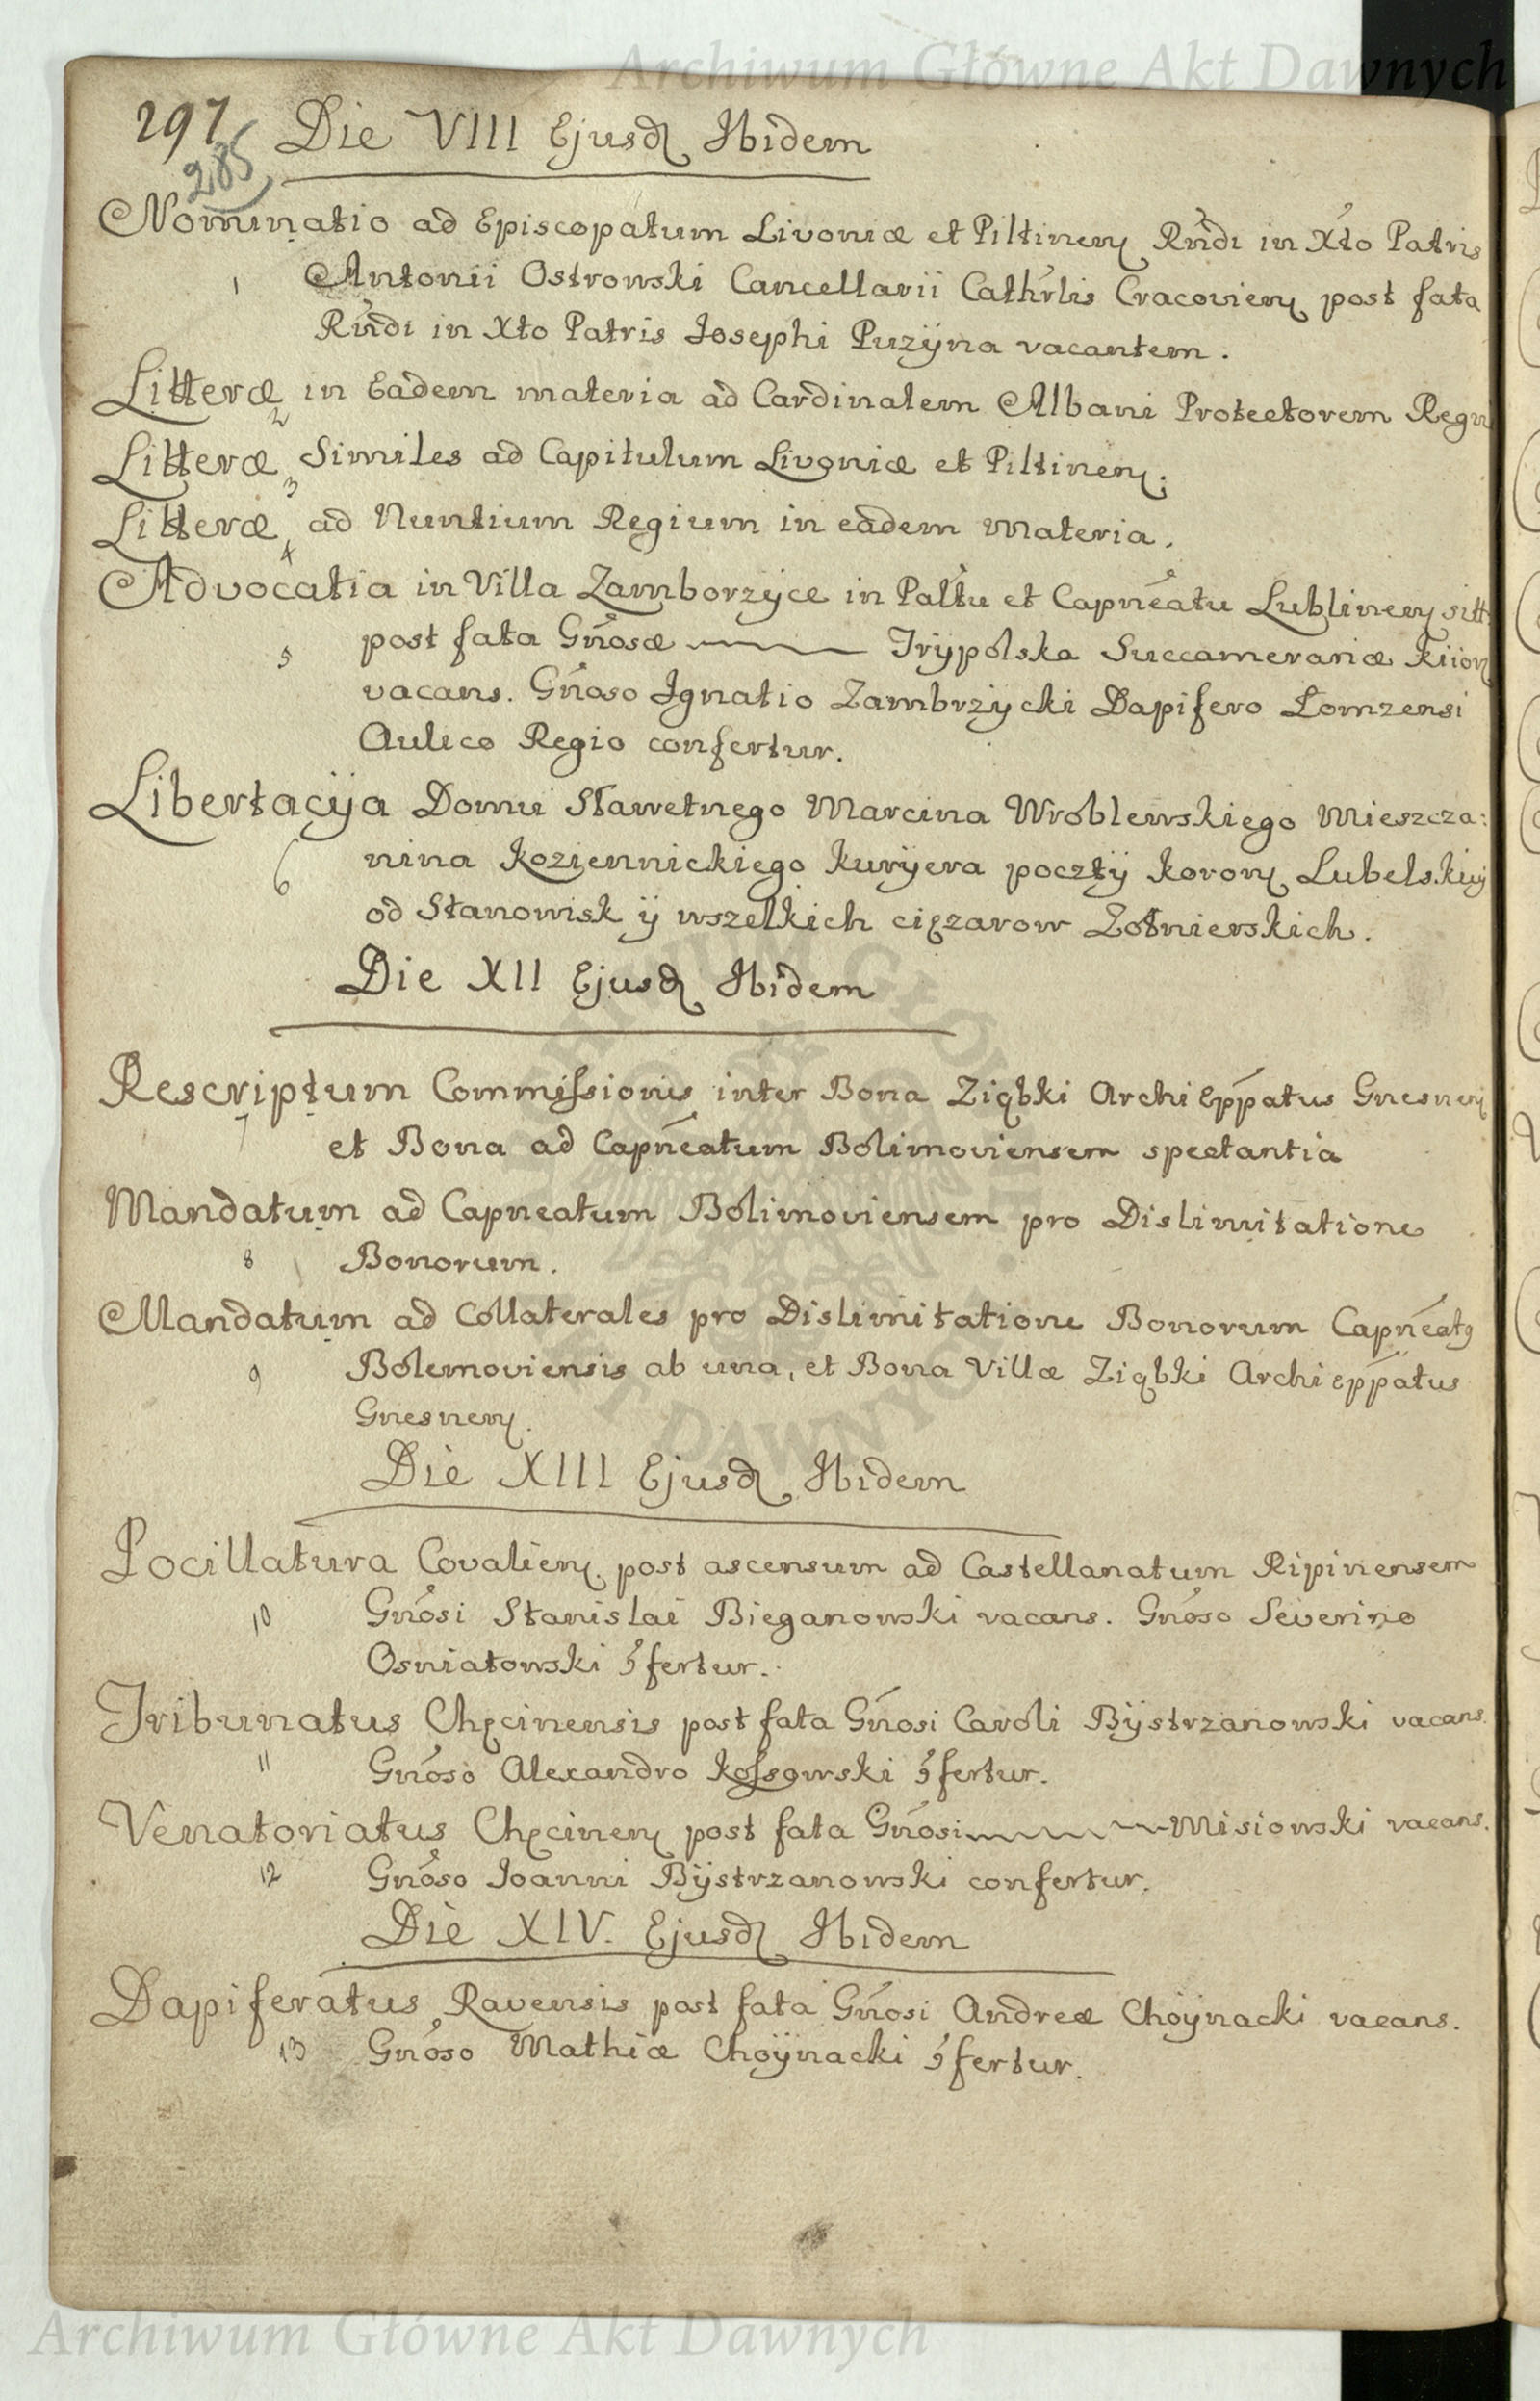 Archiwum Główne Akt Dawnych
297
285
Die VIII Ejusd Ibidem
Nominatio ad Episcopatum Livoniæ et Piltinen Rńdi in Xto Patris
1 Antonii Ostrowski Cancellarii Cathrlis Cracovien post fata
Rńdi in Xto Patris Josephi Puzÿna vacantem.
Litteræ 2 in Eadem materia ad Cardinalem Albani Protectorem Regni
Litteræ 3 Similes ad Capitulum Livoniæ et Piltinen.
Litteræ 4 ad Nuntium Regium in eadem materia.
Advocatia in Villa Zamborzÿce in Palttu et Capneatu Lublinen sitt:
5 post fata Gńosæ Trÿpolska Succamerariæ Kiiov
vacans. Gńoso Ignatio Zambrzÿcki Dapifero Łomzensi
Aulico Regio confertur.
Libertacÿa Domu Sławetnego Marcina Wroblewskiego Mieszcza:
6 nina Koziennickiego Kurÿera poczty Koron Lubelskiÿ
od Stanowisk ÿ wszelkich ciężarow Zołnierskich.
Die XII Ejusd Ibidem
Rescriptum Commissionis inter Bona Ziąbki Archi Eppatus Gnesnen
7 et Bona ad Capneatum Bolimoviensem spectantia
Mandatum ad Capneatum Bolimoviensem pro Dislimitatione
8 Bonorum.
Mandatum ad Collaterales pro Dislimitatione Bonorum Capneatg
9 Bolemoviensis ab una, et Bona Villæ Ziąbki Archi Eppatus
Gnesnen.
Die XIII Ejusd Ibidem
Pocillatura Covalien. post ascensum ad Castellanatum Ripinensem
10 Gńosi Stanislai Bieganowski vacans. Gńoso Severino
Osniatowski 9fertur.
Tribunatus Chęcinensis post fata Gńosi Caroli Bÿstrzanowski vacans.
11 Gńoso Alexandro Kossowski 9fertur.
Venatoriatus Chęcinen post fata Gńosi Misiowski vacans.
12 Gńoso Joanni Bÿstrzanowski confertur.
Die XIV. Ejusd Ibidem
Dapiferatus Ravensis post fata Gńosi Andreæ Choÿnacki vacans.
13 Gńoso Mathiæ Choÿnacki 9fertur.
Archiwum Główne Akt Dawnych